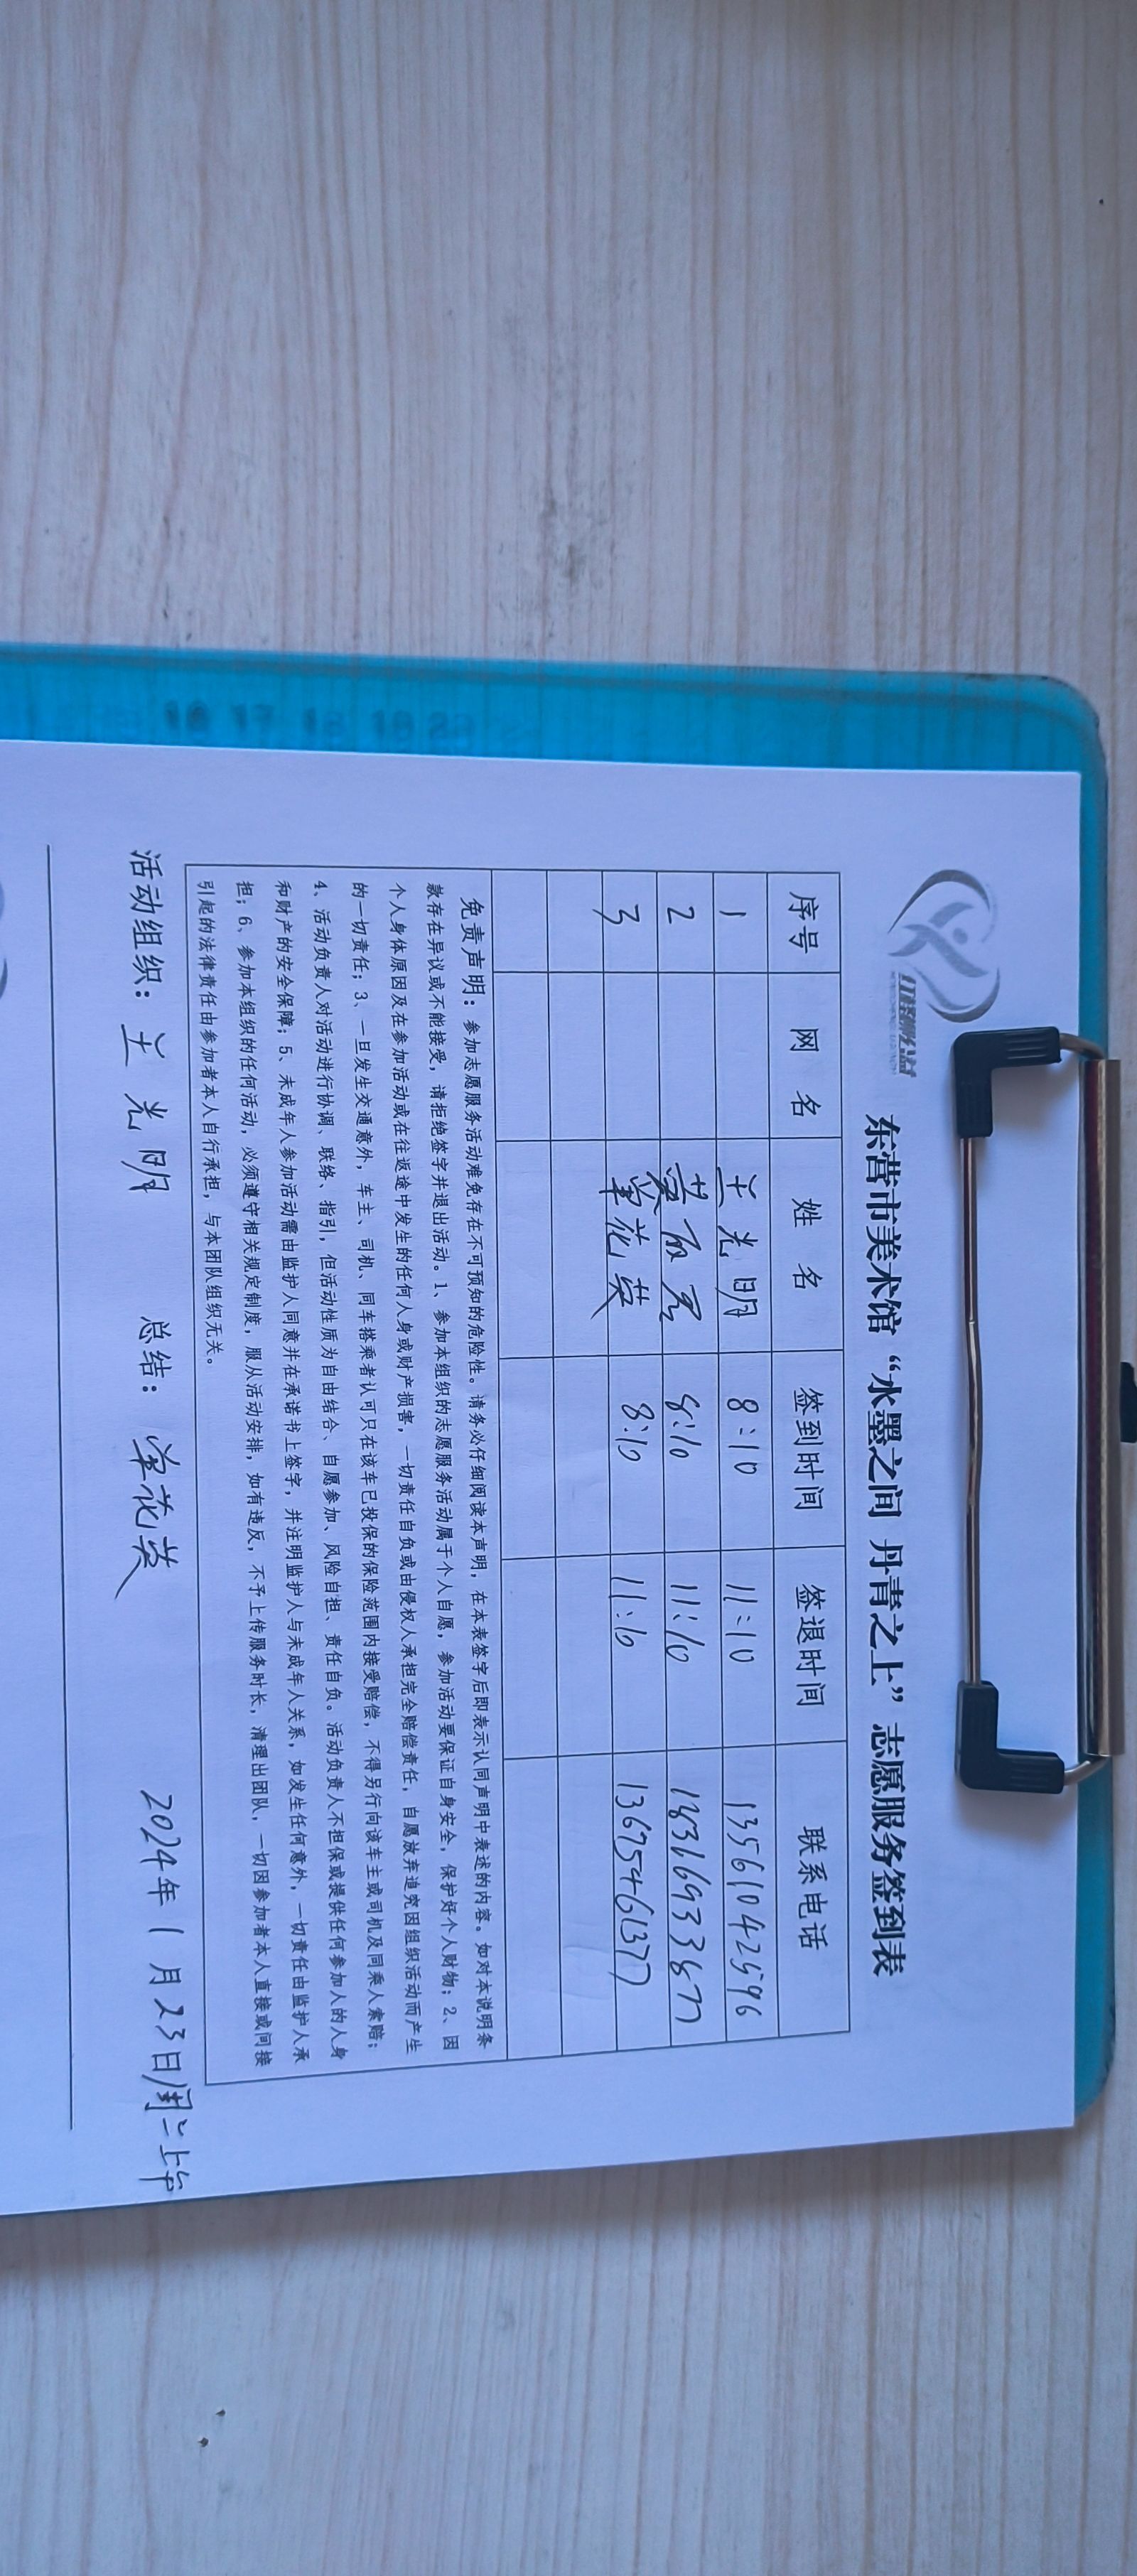 东营市美术馆“水墨之间 丹青之上”志愿服务签到表
序号 网 名 姓 名 签到时间 签退时间 联系电话
1 兰光明 8:10 11:10 13561042596
2 8:10 11:10 18316933677
3 单花英 8:10 11:10 13675461377
免责声明：参加志愿服务活动难免存在不可预知的危险性。请务必仔细阅读本声明，在本表签字后即表示认同声明中表述的内容。如对本说明条
款存在异议或不能接受，请拒绝签字并退出活动。1、参加本组织的志愿服务活动属于个人自愿，参加活动要保证自身安全，保护好个人财物；2、因
个人身体原因及在参加活动或在往返途中发生的任何人身或财产损害，一切责任自负或由侵权人承担完全赔偿责任，自愿放弃追究因组织活动而产生
的一切责任；3、一旦发生交通意外，车主、司机、同车搭乘者认可只在该车已投保的保险范围内接受赔偿，不得另行向该车主或司机及同乘人索赔；
4、活动负责人对活动进行协调、联络、指引，但活动性质为自由结合、自愿参加、风险自担、责任自负。活动负责人不担保或提供任何参加人的人身
和财产的安全保障；5、未成年人参加活动需由监护人同意并在承诺书上签字，并注明监护人与未成年人关系，如发生任何意外，一切责任由监护人承
担；6、参加本组织的任何活动，必须遵守相关规定制度，服从活动安排，如有违反，不予上传服务时长，清理出团队，一切因参加者本人直接或间接
引起的法律责任由参加者本人自行承担，与本团队组织无关。
活动组织：兰光明 总结：单花英 2024年1月23日周二上午